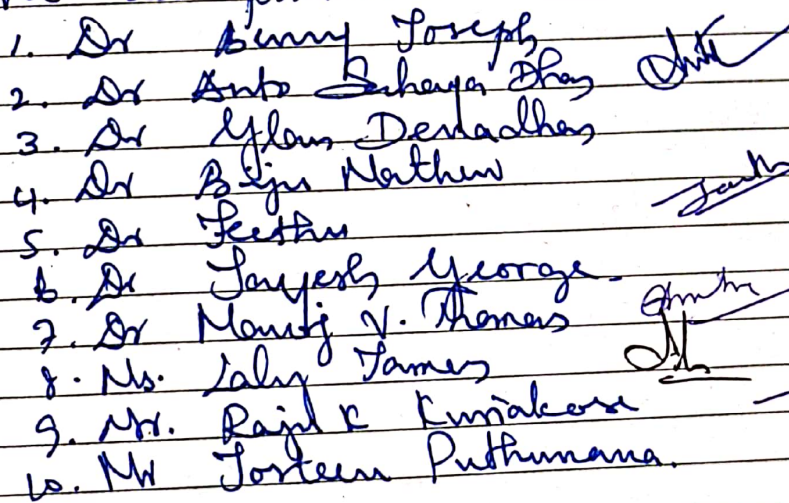 1. Dr Benny Joseph
2. Dr Anto Sahaya Dhas
3. Dr Glan Devadhas
4. Dr Biju Mathew
5. Dr Jeethu
6. Dr Jayesh George
7. Dr Manoj V. Thomas
8. Ms. Laly James
9. Mr. Rajil K Kuriakose
10. Mr Josteen Puthumana.